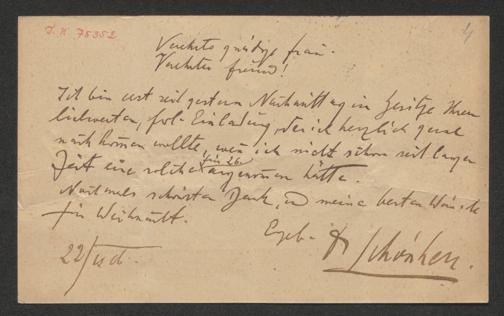 I.N. 75352
4
Verehrte gnädige Frau.
Verehrter Freund!
Ich bin erst seit gestern Nachmittag im Besitze Ihrer
liebwerten, Einladung, der ich herzlich gerne
nachkommen wollte, wenn ich nicht schon seit langer
für 26.
Zeit eine solche angenommen hätte.
Nochmals schönsten Dank, und meine besten Wünsche
für Weihnacht.
Ergeb. Dr Schönherr.
22/